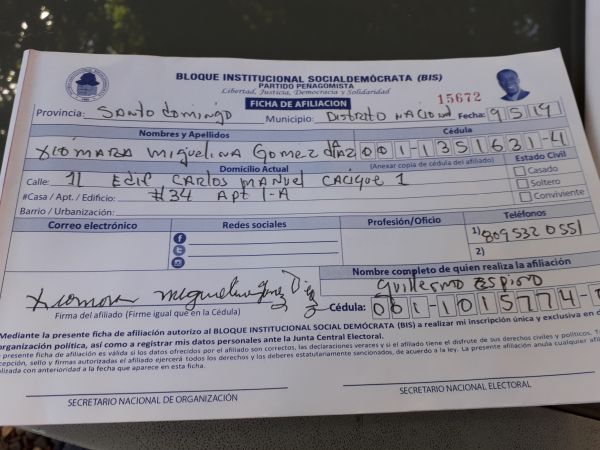 BLOQUE INSTITUCIONAL SOCIALDEMÓCRATA (BIS)
PARTIDO PENAGOMISTA
Libertad, Justicia, Democracia y Solidaridad
15672
FICHA DE AFILIACION
Provincia: SANTO DOMINGO Municipio: DISTRITO NACIONAL Fecha: 9/5/19
Nombres y Apellidos Cédula
XIOMARA MIGUELINA GOMEZ DIAZ 001-1351631-4
Domicilio Actual (Anexar copia de cédula del afiliado) Estado Civil
Calle: 11 EDIF CARLOS MANUEL CACIQUE 1 Casado
#Casa / Apt. / Edificio: #34 APT 1-A Soltero
Barrio / Urbanización: Conviviente
Correo electrónico Redes sociales Profesión/Oficio Teléfonos
1) 809532 0551
2)
Nombre completo de quien realiza la afiliación
Guillermo ESPINO
Xiomara
Firma del afiliado (Firme igual que en la Cédula) Cédula: 001-1015774-
Mediante la presente ficha de afiliación autorizo al BLOQUE INSTITUCIONAL SOCIAL DEMÓCRATA (BIS) a realizar mi inscripción única y exclusiva en
organización política, así como a registrar mis datos personales ante la Junta Central Electoral.
presente ficha de afiliación es válida si los datos ofrecidos por el afiliado son correctos, las declaraciones veraces y si el afiliado tiene el disfrute de sus derechos civiles y políticos.
cepción, sello y firmas autorizadas el afiliado ejercerá todos los derechos y los deberes estatutariamente sancionados, de acuerdo a la ley. La presente afiliación anula cualquier
lizada con anterioridad a la fecha que aparece en esta ficha.
SECRETARIO NACIONAL DE ORGANIZACIÓN SECRETARIO NACIONAL ELECTORAL